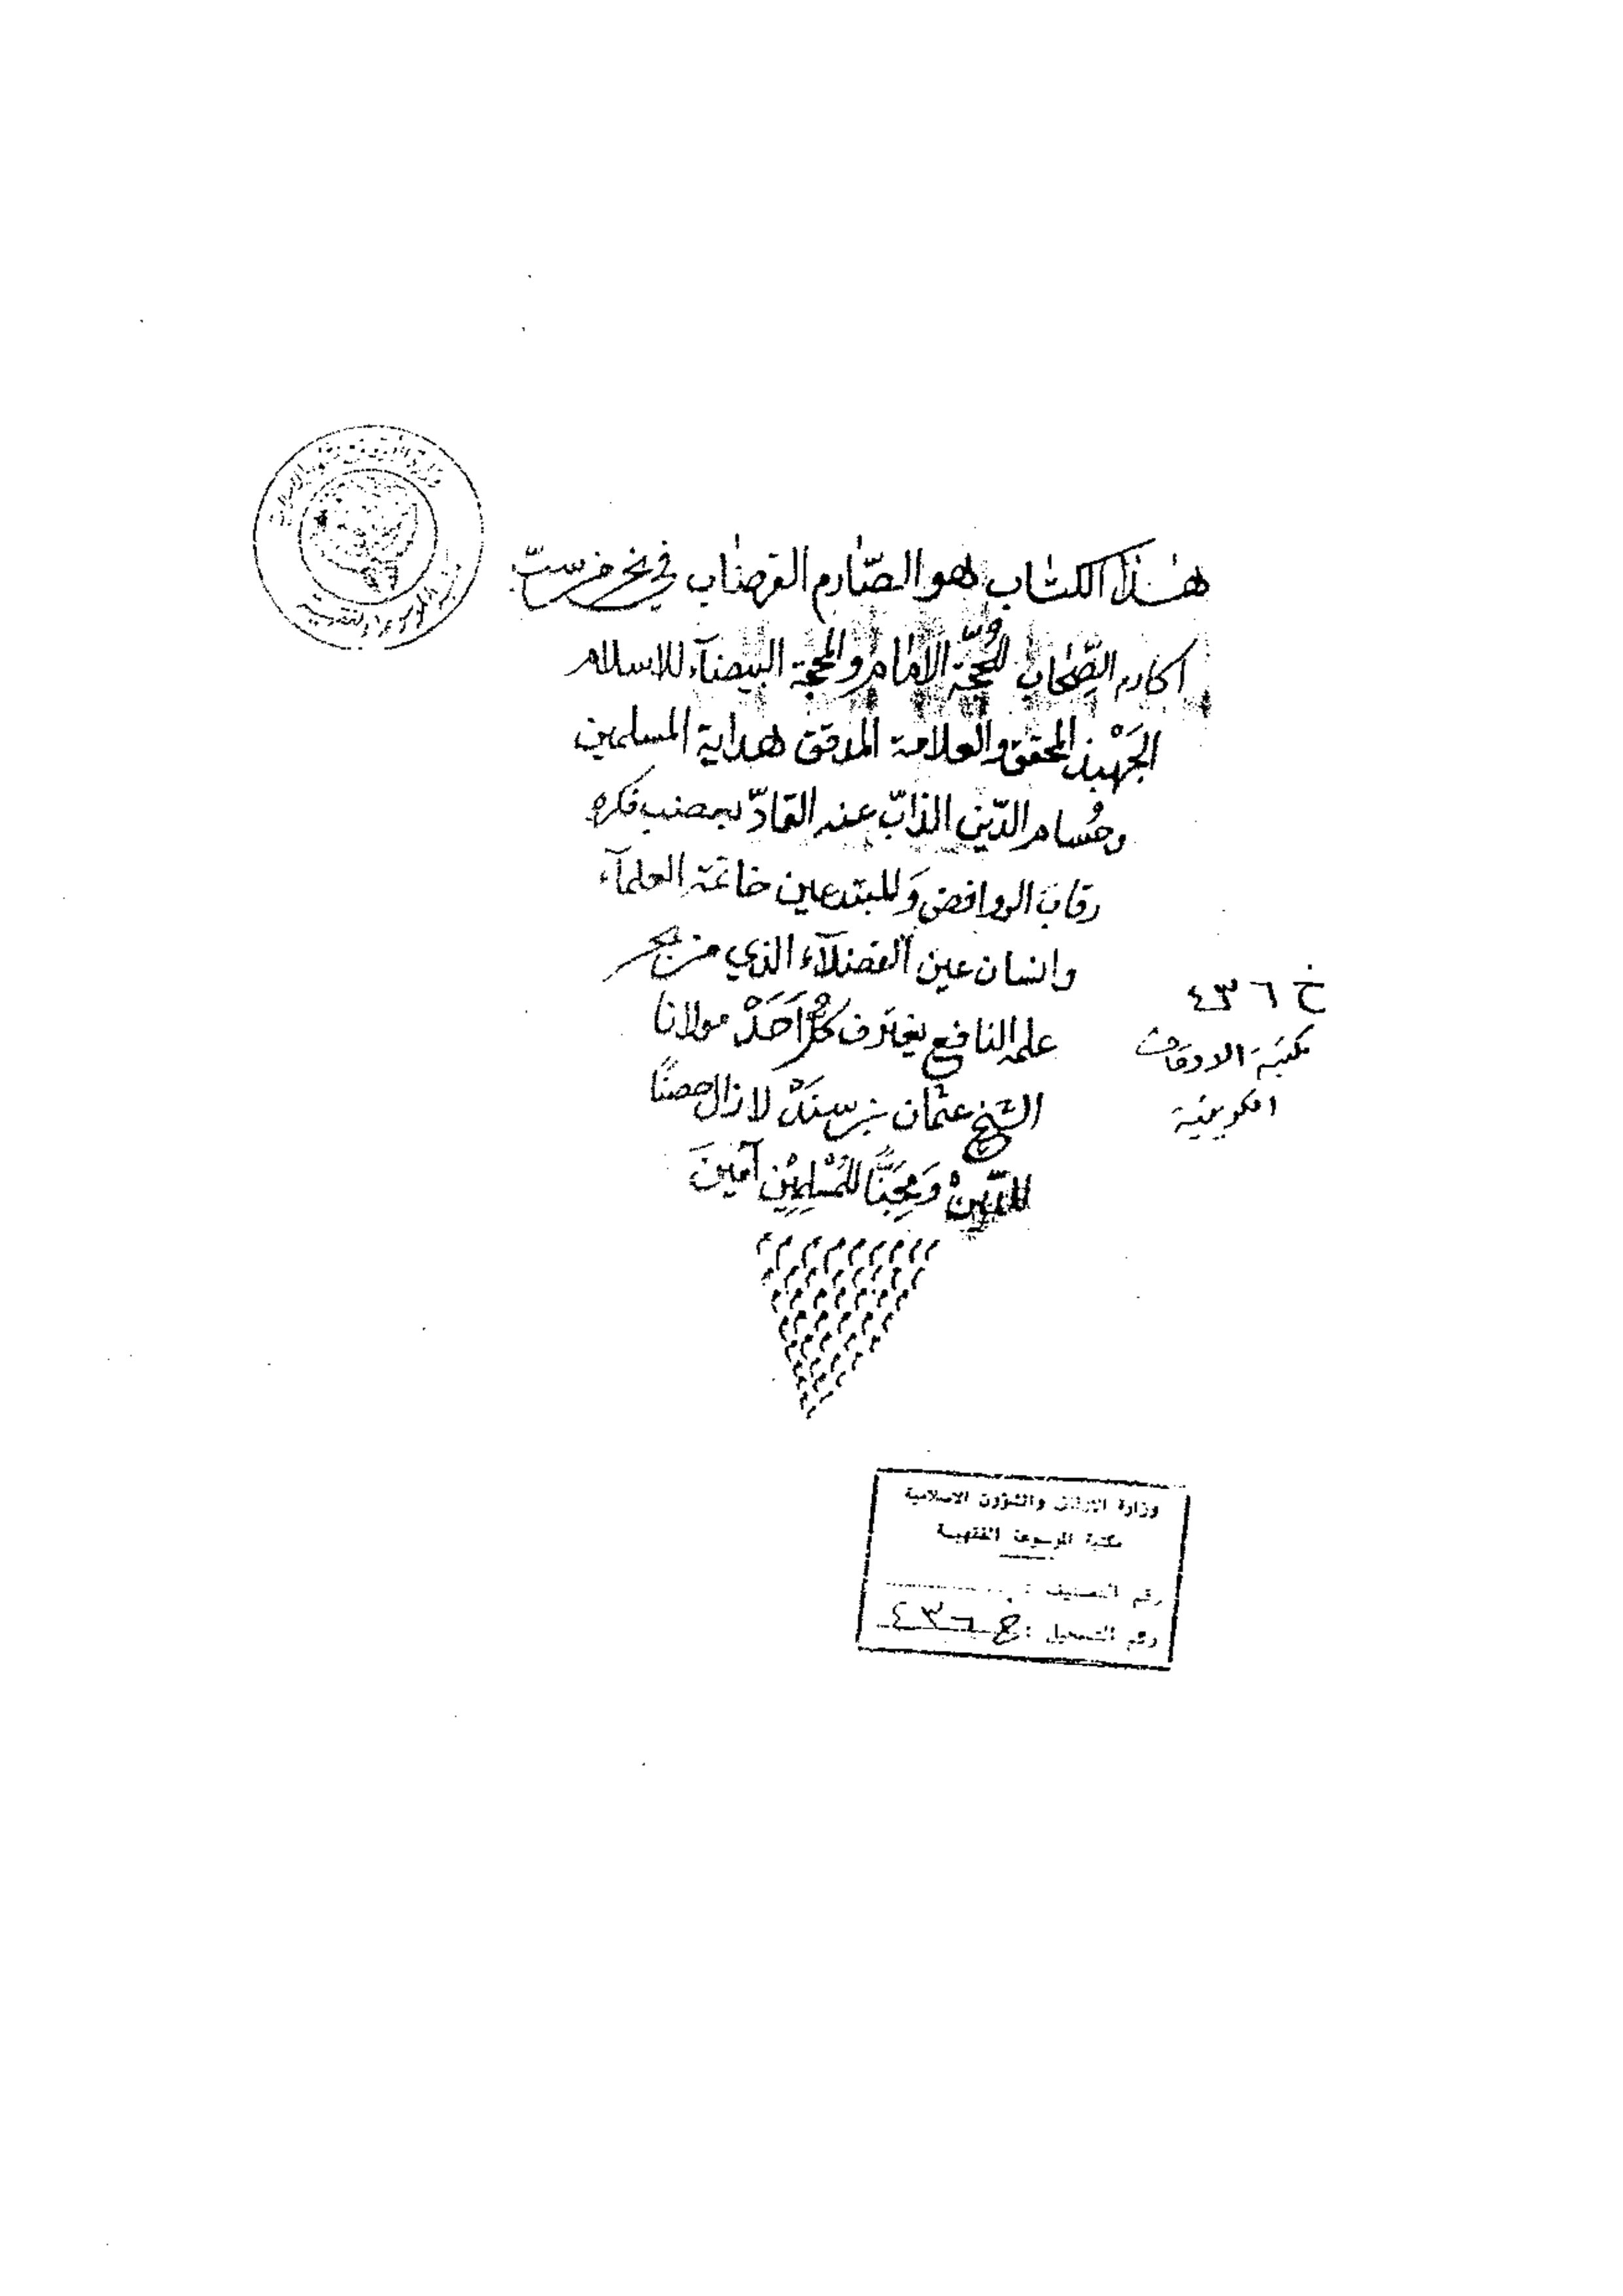 هٰذا الكتٰاب هو الصّٰارم القرضٰاب في نحر من سبّ
اكارم الصّحٰاب للحجّة الامٰام والمحجة البيضآء للاسلام
الجَهْبذ المحقق والعلامة المدقق لهداية المسلمين
وحُسام الدّين الذابّ عنه القادّ بعضب فكره
رقابَ الروافض وَللمبتدعين خاتمة العلمآء
وانسان عين الفضلآء الذي من بحر
علمه النافع يغترف كلُّ اَحَدْ مولانا
الشيخ عثمان بن سنَدْ لازال حصنًا
للدّينْ وَمِجَنًّا للمُسْلِمِيْن آمينَ
خ ٤٣٦
مكتبة الاوقاف
الكويتية
وزارة الاوقاف والشؤون الاسلامية
مكتبة الموسوعة الفقهية
رقم التصنيف :
رقم التسجيل : خ ٤٣٦